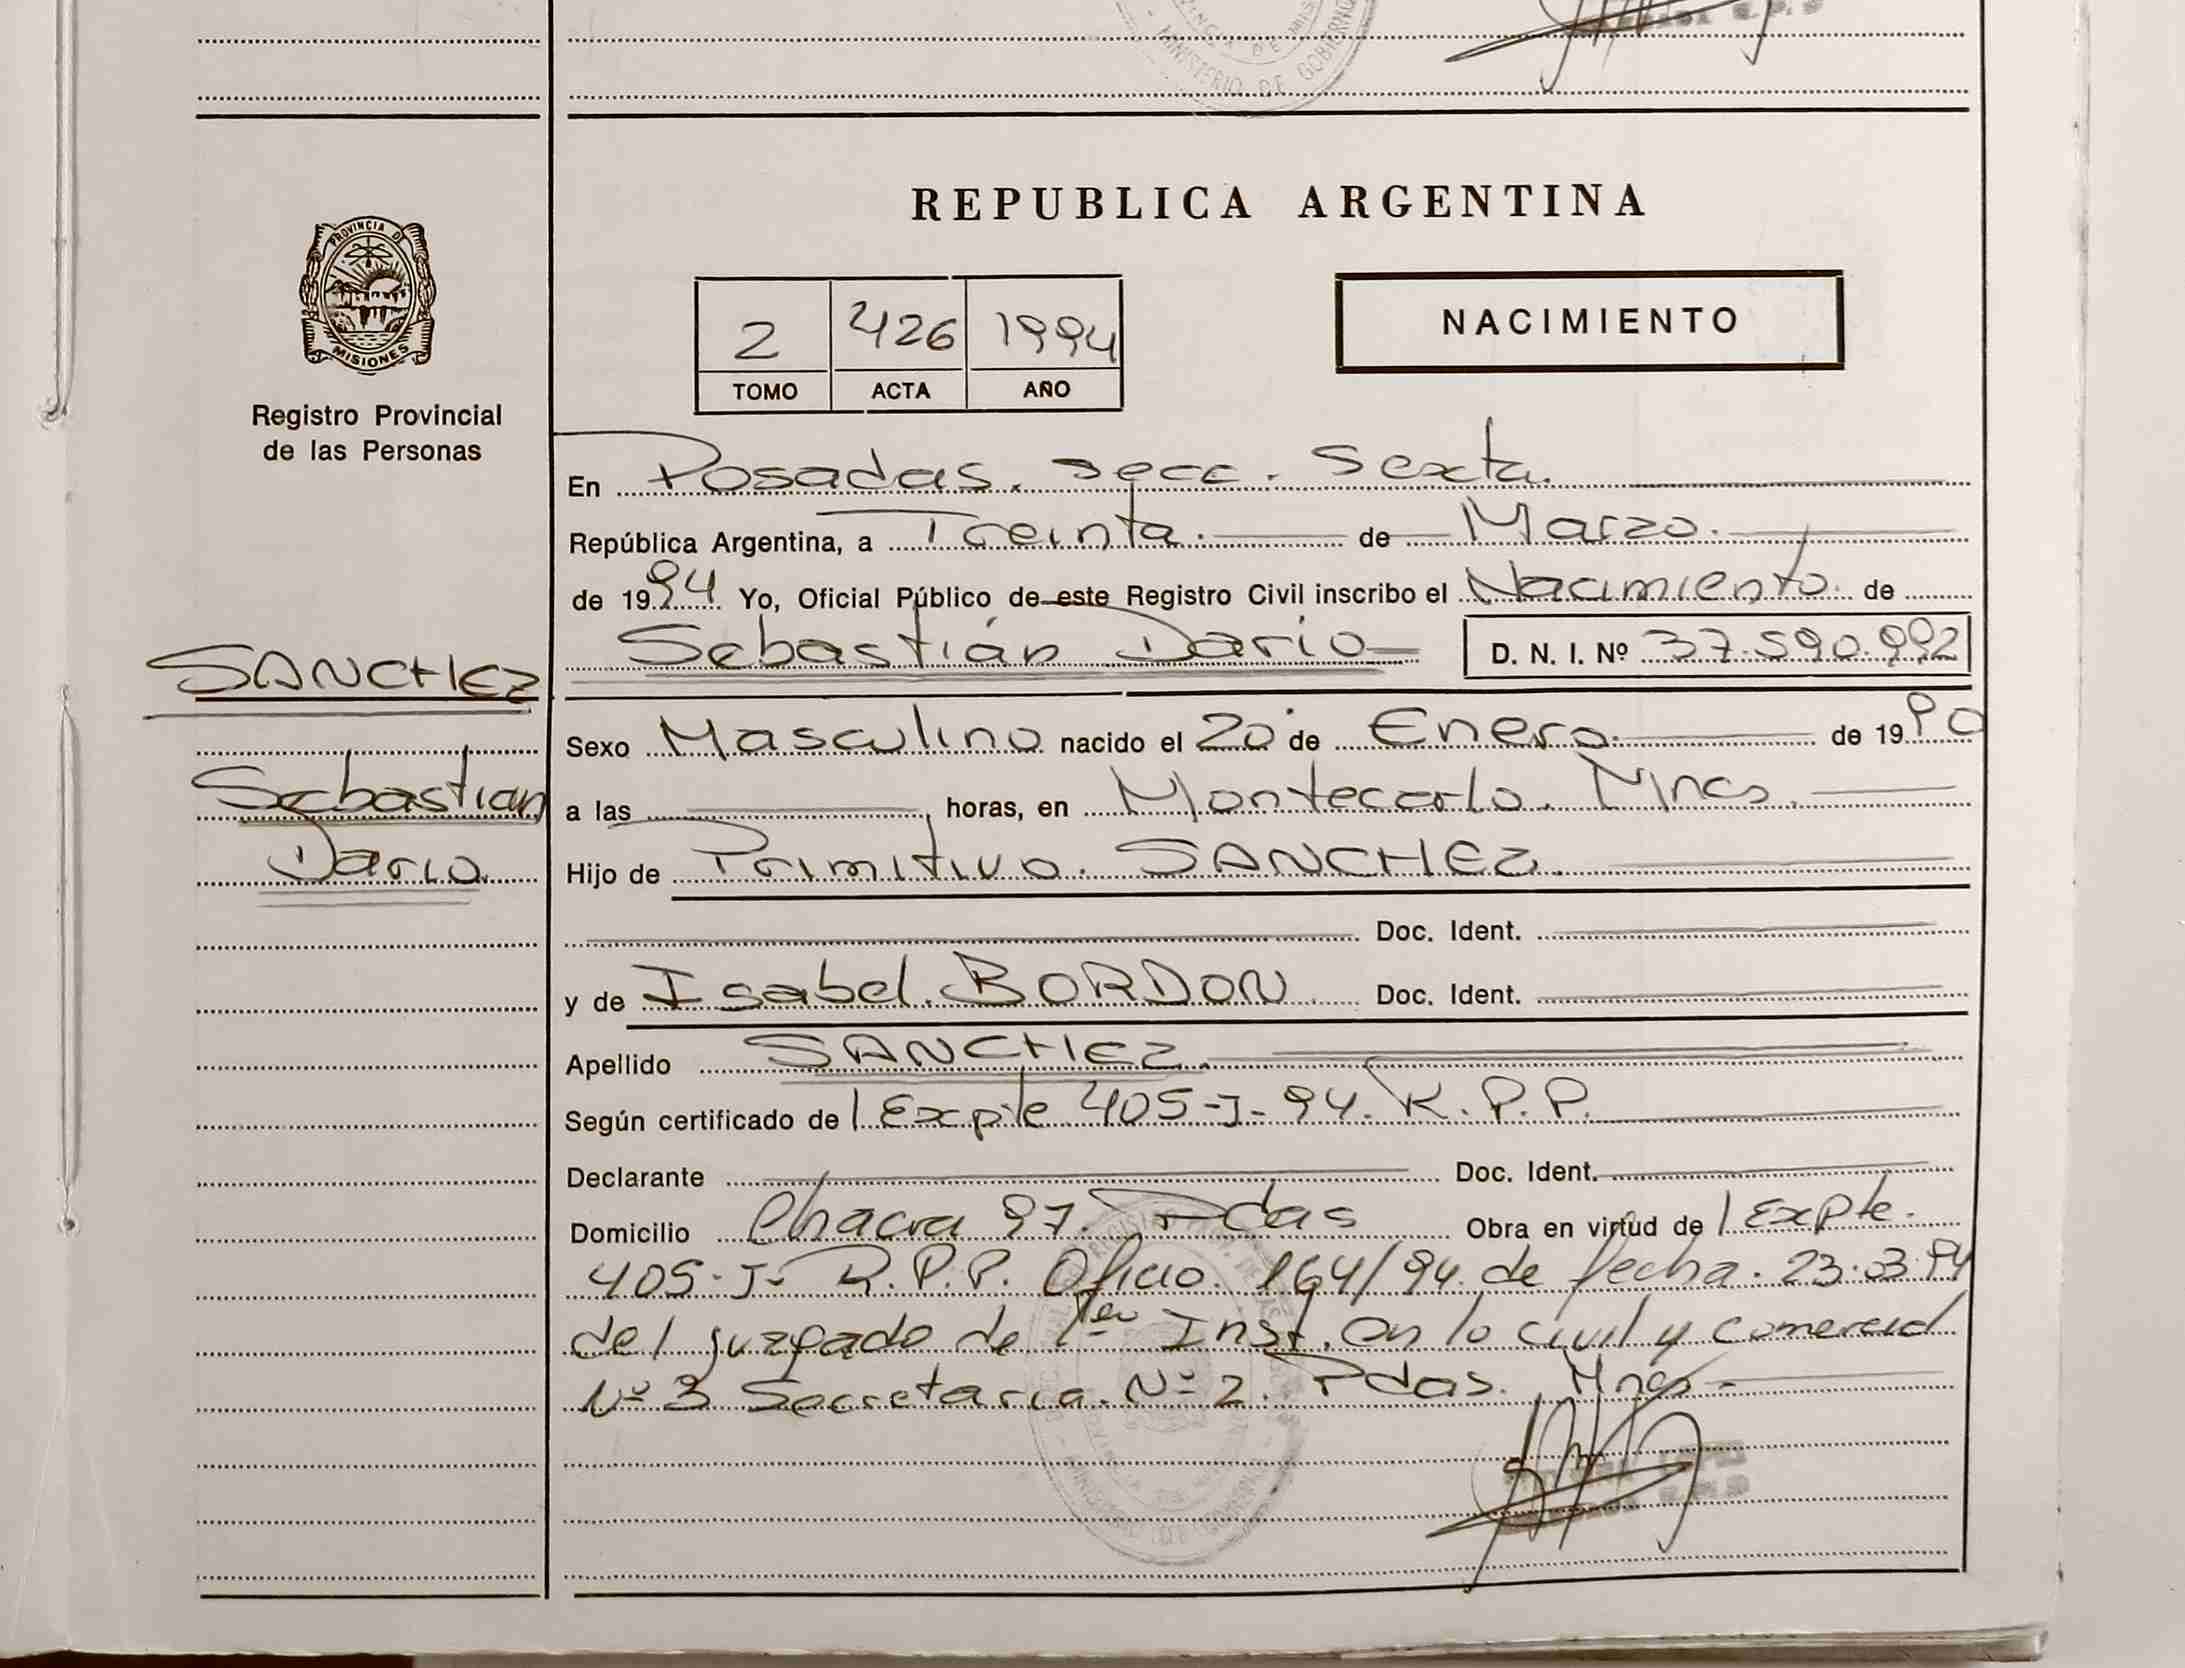 MINISTERIO DE GOBIERNO
REPUBLICA ARGENTINA
PROVINCIA DE
MISIONES
Registro Provincial
de las Personas
2 426 1994
TOMO ACTA AÑO
NACIMIENTO
En Posadas. secc. Sexta.
República Argentina, a Treinta. de Marzo.
de 1994 Yo, Oficial Público de este Registro Civil inscribo el Nacimiento. de
Sebastián Dario D. N. I. Nº 37.590.992
SANCHEZ
Sebastian
Dario
Sexo Masculino nacido el 20 de Enero de 1990
a las horas, en Montecarlo. Mnes.
Hijo de Primitivo. SANCHEZ.
Doc. Ident.
y de Isabel. BORDON Doc. Ident.
Apellido SANCHEZ.
Según certificado de Expte 405-J-94. R.P.P.
Declarante Doc. Ident.
Domicilio Chacra 97. Pdas Obra en virtud de Expte.
405-J- R.P.P. Oficio. 164/94. de fecha. 23.3.94
del juzgado de 1er Inst. en lo civil y comercial
Nº 3 Secretaria. Nº 2. Pdas. Mnes-